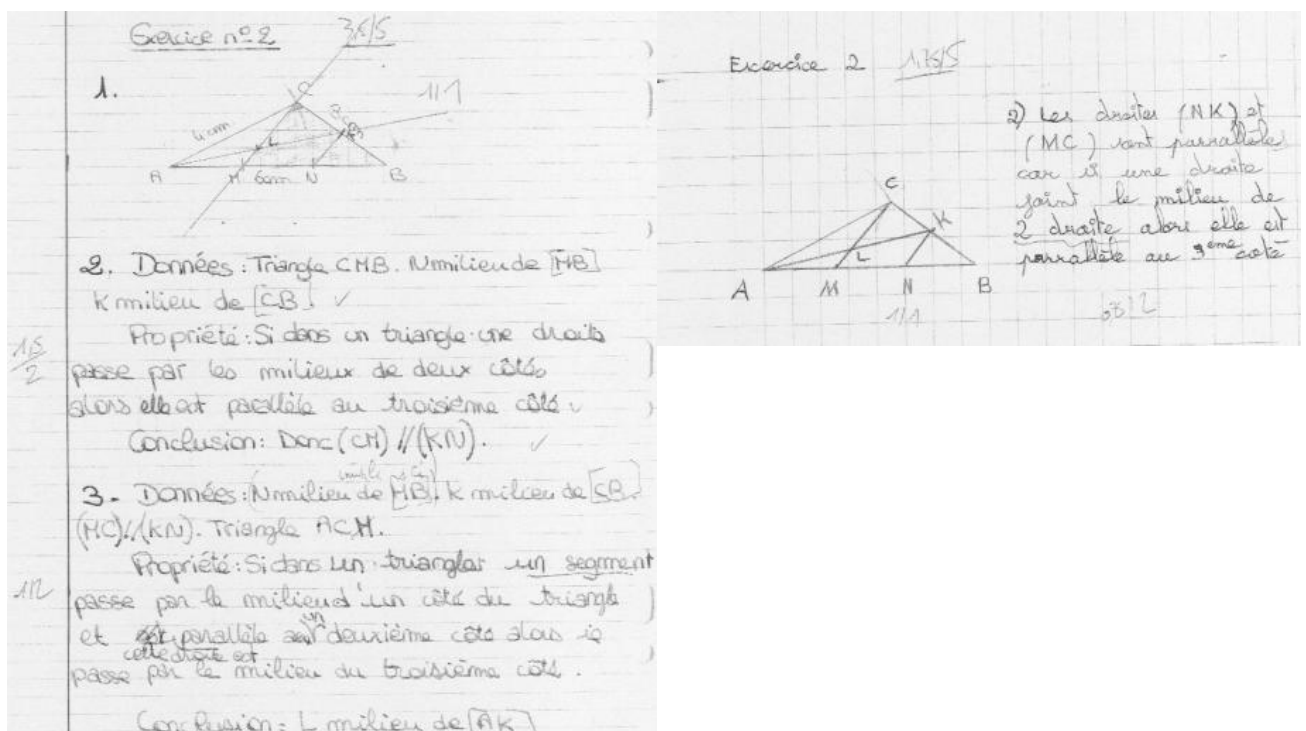 Exercice n° 2 3,5/5
1. 1/1
C
4cm 3cm
K
L
A M 6cm N B
2. Données : Triangle CMB. N milieu de [MB]
K milieu de [CB]. ✓
Propriété : Si dans un triangle une droite
1,5/2
passe par les milieux de deux côtés
alors elle est parallèle au troisième côté.
Conclusion : Donc (CM) // (KN). ✓
3. Données : (N milieu de [MB]). K milieu de [CB].
(MC) // (KN). Triangle ACM.
Propriété : Si dans un triangle un segment
1/2
passe par le milieu d'un côté du triangle
et parallèle un deuxième côté alors
cette droite est
passe par le milieu du troisième côté.
Conclusion : L milieu de [AK]
Exercice 2 1,75/5
2) Les droites (NK) et
(MC) sont parralèle
car si une droite
joint le milieu de
2 droite alors elle est
parralèle au 3ème coté
C
K
L
A M N B
1/1